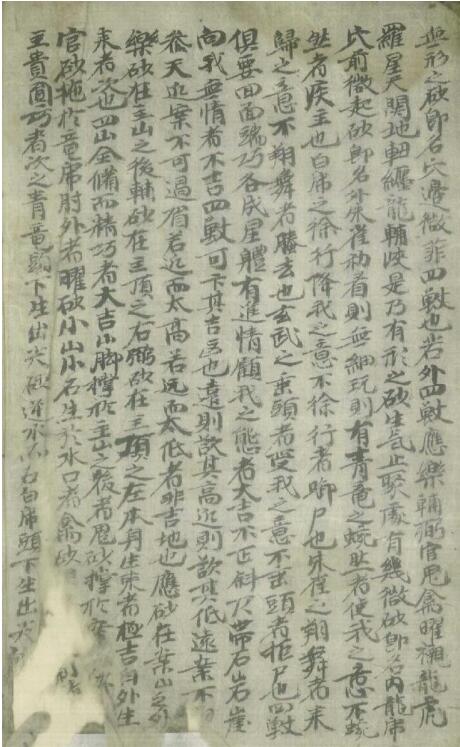 無形之砂卽名穴邊微菲四獸也若外四獸應樂輔弼官鬼禽曜襯龍虎
羅星天関地軸纏龍輔峽是乃有形之砂生氣止聚處有幾微砂卽名內龍席
穴前微起砂卽名外朱雀初看則無細玩則有青竜之蜿然者使我之意不蜿
然者疾主也白席之徐行降我之意不徐行者啣尸也朱雀之翔舞者来
歸之意不翔舞者騰去也玄武之垂頭者受我之意不垂頭者拒尸也四獸
俱要回面端巧各成星軆有進情顧我之態者大吉不正斜欠帶石岩崖
向我無情者不吉四獸可卞其吉凶也遠則欲其高近則欲其低遠案不
参天近案不可逼眉若近而太高若远而太低者非吉地也應砂在案山之外
樂砂在主山之後輔砂在主頂之右弼砂在主頂之左本身生来者極吉自外生
来者次也四山全備而精巧者大吉小脚撑於主山之後者鬼砂撑於
官砂拖於竜席肘外者曜砂小山小石生於水口者禽砂
主貴圓巧者次之青竜頭下生出尖砂逆水而 白席頭下生出尖